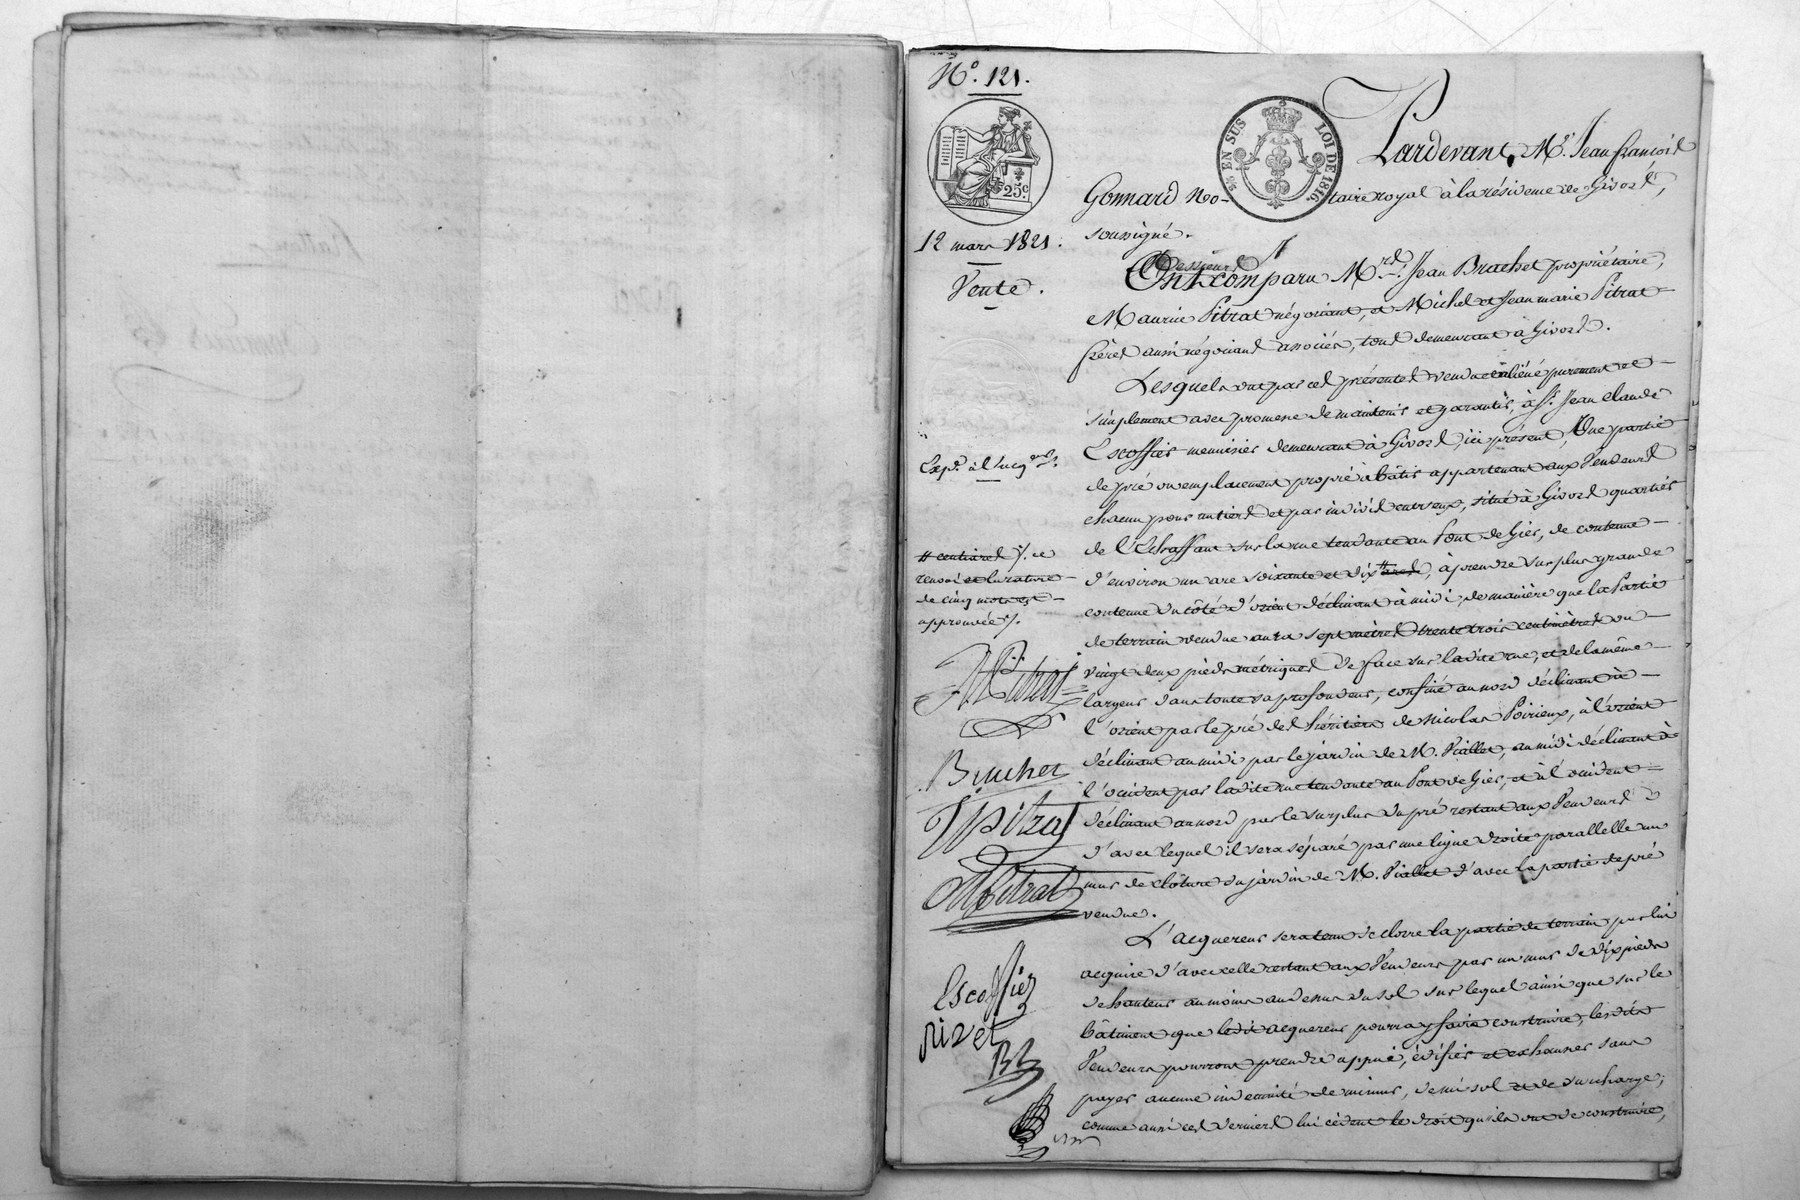 N.º 121.
25.c
EN SUS
LOI DE 1816.
12 mars 1821.
Vente.
Pardevant, Mº. Jean françois
Gonnard No-taire royal à la résidence de Givors,
soussigné.
Ont comparu Mrs. Jean Brachet propriétaire,
Maurice Pitrat négociant, et Michel et Jean marie Pitrat
frères aussi négociants associés, tous demeurant à Givors.
Lesquels ont par ces présentes vendu et aliéné purement et
simplement avec promesse de maintenir et garantir, à Sr. Jean claude
Escoffier menuisier demeurant à Givors, ici présent, Une partie
de pré ou emplacement propre à bâtir appartenant aux Vendeurs
chacun pour un tiers et par indivis entr'eux, situé à Givors quartier
de sur la rue tendante au Pont de Gier, de contenue
d'environ un are soixante et dix # ares, à prendre sur plus grande
contenue du côté d'orient déclinant à midi, de manière que la Partie
de terrain vendue aura sept mètres trente trois centimètres ou
vingt deux pieds métriques de face sur ladite rue, et de la même
largeur dans toute sa profondeur, confiné au nord déclinant à
l'orient par le pré des héritiers de Nicolas Poirieux, à l'orient
déclinant au midi par le jardin de M. Viallet, au midi déclinant à
l'occident par ladite rue tendante au Pont de Gier, et à l'occident
déclinant au nord par le surplus du pré restant aux Vendeurs
d'avec lequel il sera séparé par une ligne droite parallelle au
mur de clôture du jardin de M. Viallet d'avec la partie de pré
vendue.
L'acquereur sera tenu de clorre la partie de terrain par lui
acquise d'avec celle restant aux Vendeurs par un mur de dix pieds
de hauteur au moins au dessus du sol sur lequel ainsi que sur le
bâtiment que ledit acquereur pourra y faire construire, lesdits
Vendeurs pourront prendre appui, édifier et exhausser sans
payer aucune indemnité de minus, de mi sol et de surcharge;
comme aussi ces derniers lui cèdent le droit qu'ils ont de construire,
# centiares ./. ce
renvoi et la rature
de cinq mots est
approuvée ./.
Brachet
Pitrat
MPitrat
Escoffier
Rivet